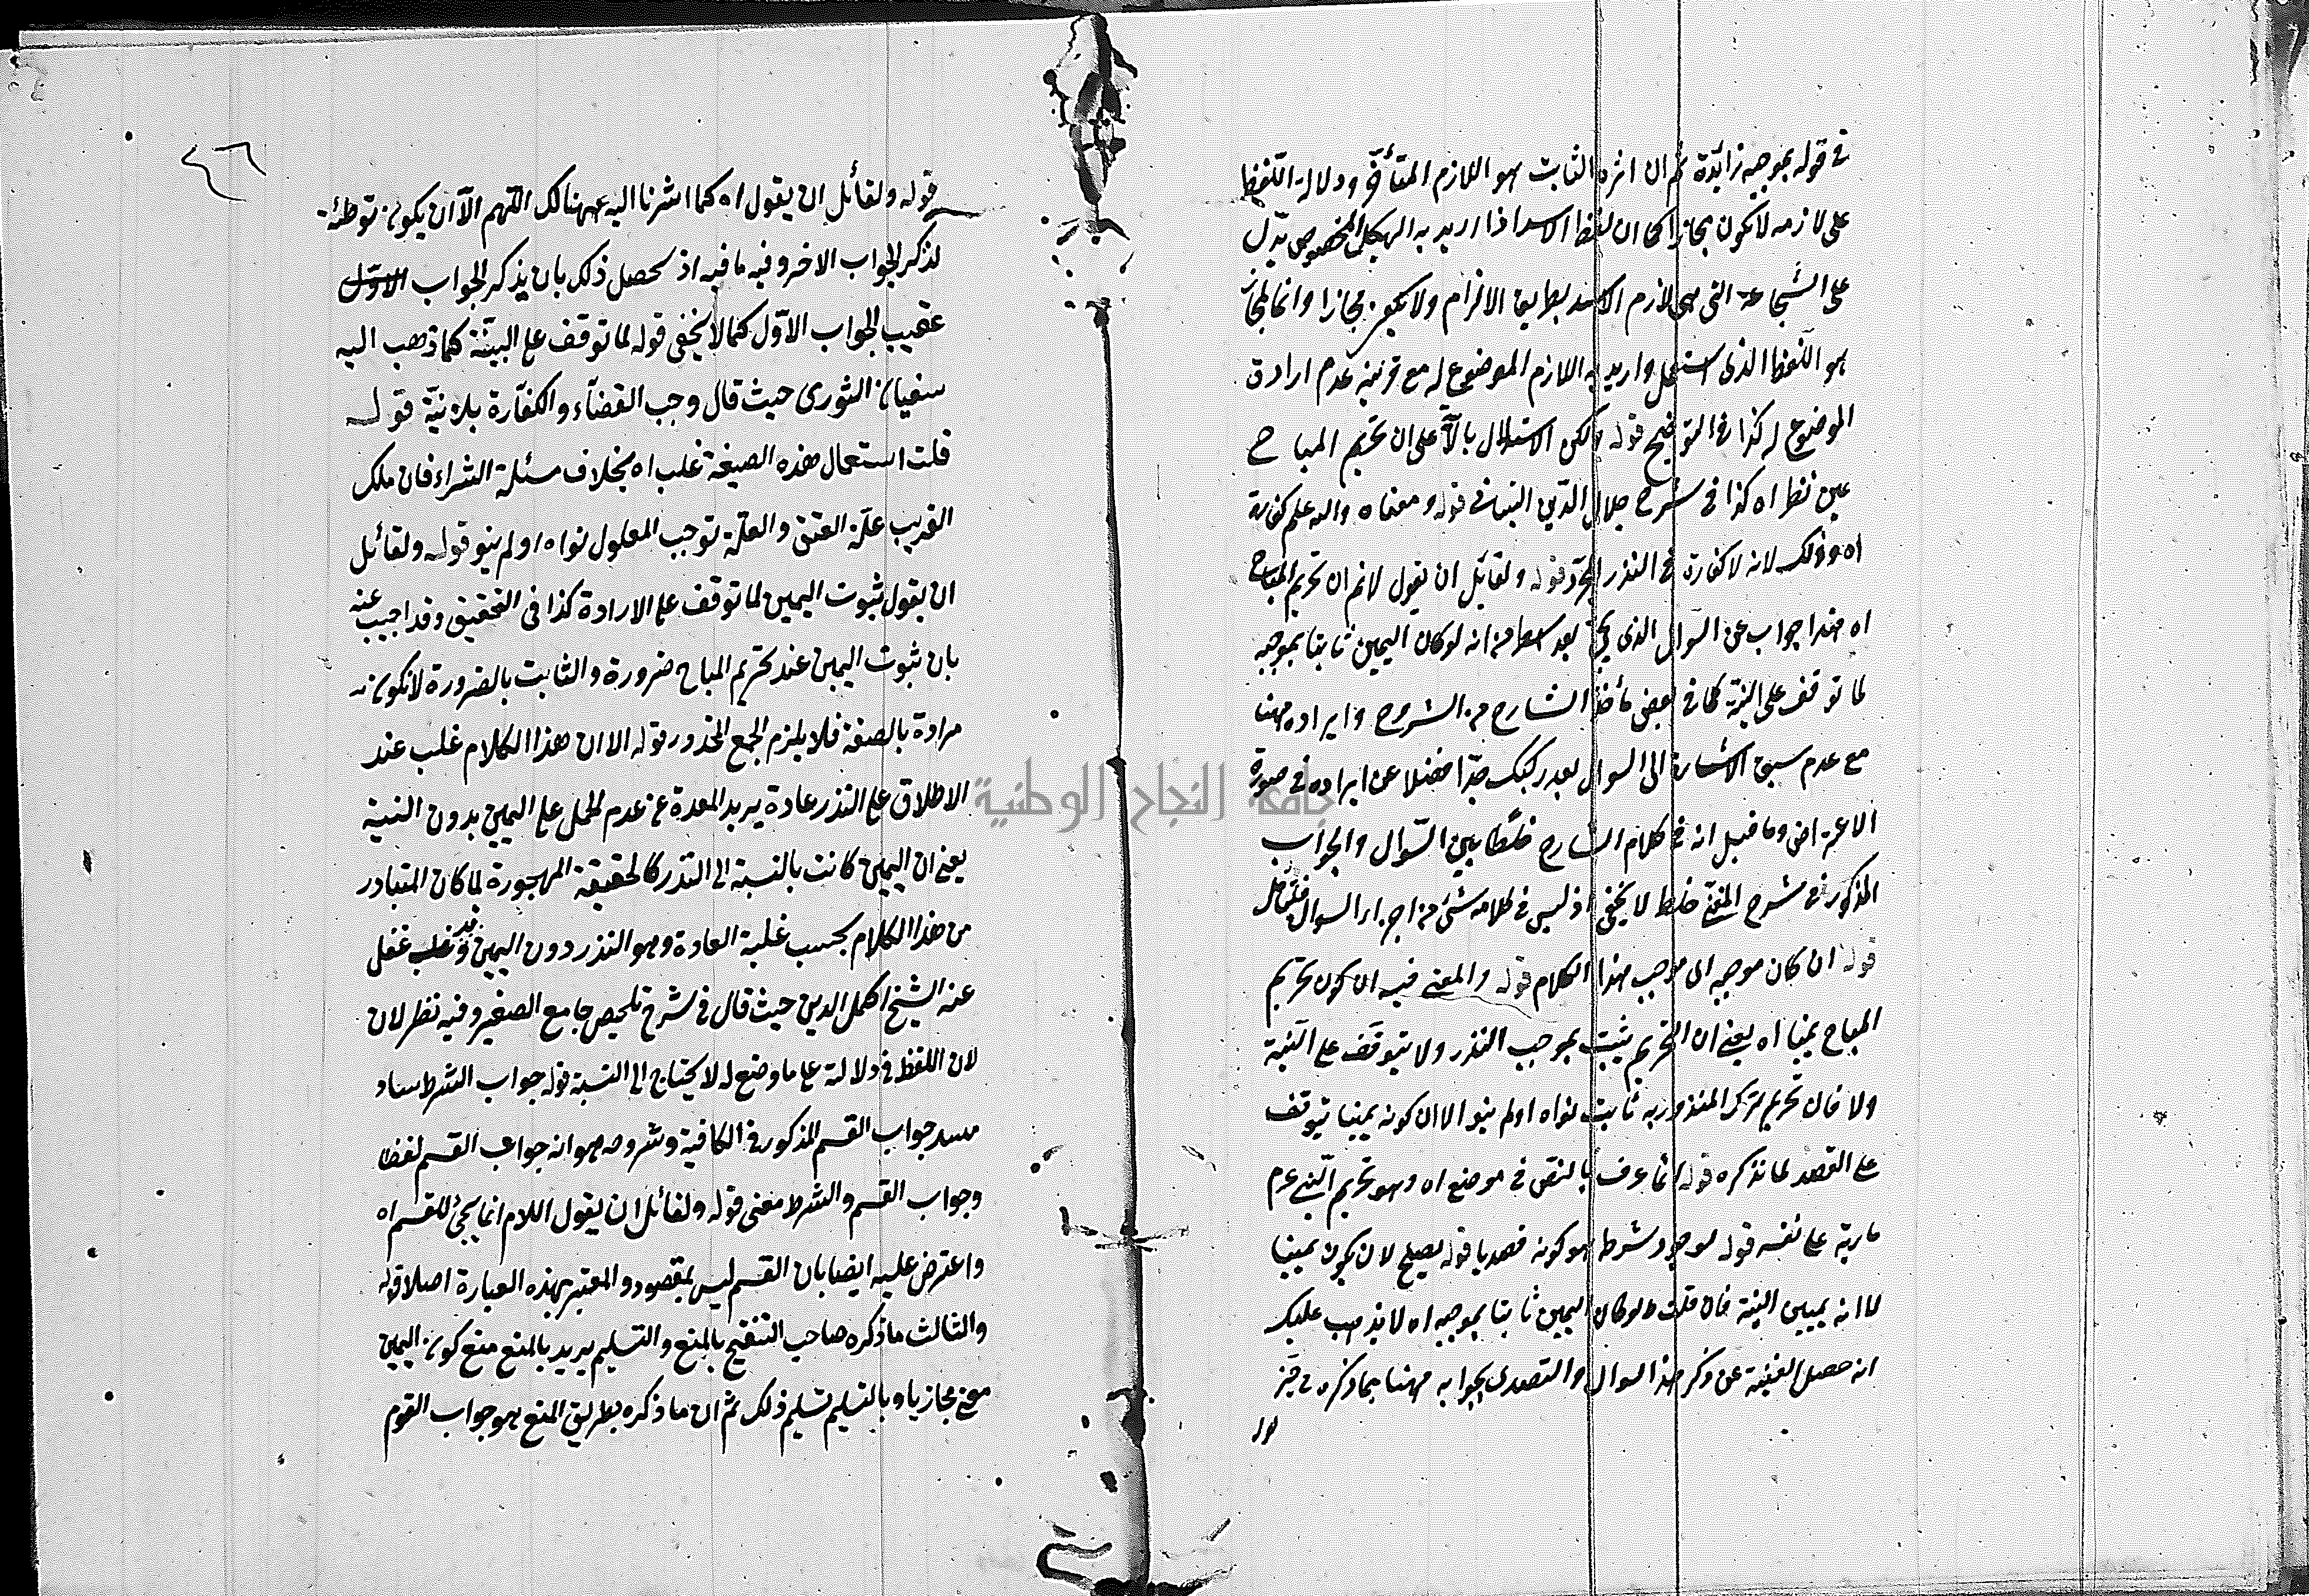 في قوله بموجبه زائدة ثم ان اثره الثابت هو اللازم المتأخر ودلالة اللفظ
على لازمه لا يكون مجازا كما ان لفظ الاسد اذا اريد به الهيكل المخصوص يدل
على الشجاعة التي هي لازم الاسد بطريق الالتزام ولا يكون مجازا وانما المجاز
هو اللفظ الذي استعمل واريد به اللازم الموضوع له مع قرينة عدم ارادة
الموضوع له كذا في التوضيح قوله ولكن الاستدلال بالآية على ان تحريم المباح
عين نظر اه كذا في شرح جلال الدين التباني قوله ومعناه والله علم كفارة
اه وذلك لانه لا كفارة في النذر المجرد قوله ولقائل ان يقول لا نم ان تحريم المباح
اه هذا جواب عن السؤال الذي يجئ بعد اسطر من انه لو كان اليمين ثابتا بموجبه
لما توقف على النية كما في بعض مأخذ الشارح من الشروح وايراده ههنا
مع عدم سبق الاشارة الى السؤال بعد ركيك جدا فضلا عن ايراده في صورة
الاعتراض وما قيل انه في كلام الشارح خلطا بين السؤال والجواب
المذكور في شرح المغني خلط لا يخفى اذ ليس في كلامه شئ من اجزاء السؤال فتأمل
قوله ان كان موجبه اى موجب هذا الكلام قوله والمعنى فيه ان كون تحريم
المباح يمينا اه يعني ان التحريم يثبت بموجب النذر ولا يتوقف على النية
ولا فان تحريم ترك المنذور به ثابت نواه او لم ينو الا ان كونه يمينا يتوقف
على القصد لما نذكره قوله انما عرف بالنص في موضع اه وهو تحريم النبي عم
مارية على نفسه قوله لوجود شرط هو كونه قصديا قوله يصلح لان يكون يمينا
لا انه يمين النية فان قلت لو كان اليمين ثابتا بموجبه اه لا يذهب عليك
انه حصل الغنية عن ذكر هذا السؤال والتصدى بجوابه ههنا بما ذكره في حيز
قوله ولقائل ان يقول اه كما اشرنا اليه هنالك اللهم الا ان يكون توطئة
لذكر الجواب الاخر وفيه ما فيه اذ يحصل ذلك بان يذكر الجواب الاول
عقيب الجواب الاول كما لا يخفى قوله لما توقف على النية كما ذهب اليه
سفيان الثورى حيث قال وجب القضاء والكفارة بلا نية قوله
قلت استعمال هذه الصيغة غلب اه بخلاف مسئلة الشراء فان ملك
القريب علة العتق والعلة توجب المعلول نواه او لم ينو قوله ولقائل
ان يقول ثبوت اليمين لما توقف على الارادة كذا في التحقيق وقد اجيب عنه
بان ثبوت اليمين عند تحريم المباح ضرورة والثابت بالضرورة لا يكون
مرادة بالصيغة فلا يلزم الجمع المحذور قوله الا ان هذا الكلام غلب عند
الاطلاق على النذر عادة يريد المعذرة عن عدم الحمل على اليمين بدون النية
يعني ان اليمين كانت بالنسبة الى النذر كالحقيقة المهجورة لما كان المتبادر
من هذا الكلام بحسب غلبة العادة وهو النذر دون اليمين وقد غفل
عنه الشيخ اكمل الدين حيث قال في شرح تلخيص جامع الصغير وفيه نظر لان
لان اللفظ في دلالته على ما وضع له لا يحتاج الى النية قوله جواب الشرط ساد
مسد جواب القسم المذكور في الكافية وشروحه هو انه جواب القسم لفظا
وجواب القسم والشرط معنى قوله ولقائل ان يقول اللام انما يجئ للقسم اه
واعترض عليه ايضا بان القسم ليس بمقصود والمعتبر بهذه العبارة اصلا قوله
والثالث ما ذكره صاحب التنقيح بالمنع والتسليم يريد بالمنع منع كون اليمين
معنى مجازيا وبالتسليم تسليم ذلك ثم ان ما ذكره بطريق المنع هو جواب القوم
جامعة النجاح الوطنية